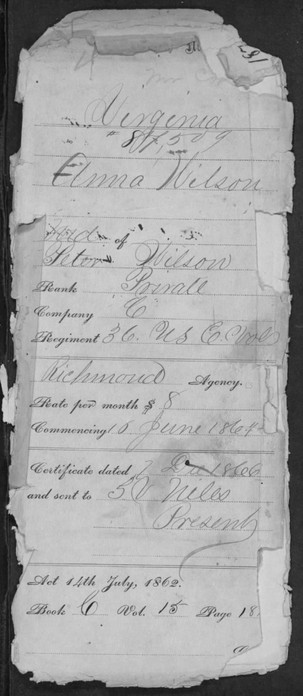 187
Virginia
87,509
Anna Wilson
Wid of
Peter Wilson
Rank Private
Company C
Regiment 36. US C. Vols
Richmond Agency.
Rate per month $ 8
Commencing June 1864
Certificate dated 7 Dec 1866
and sent to Niles
Present
Act 14th July, 1862.
Book C Vol. 15 Page 18